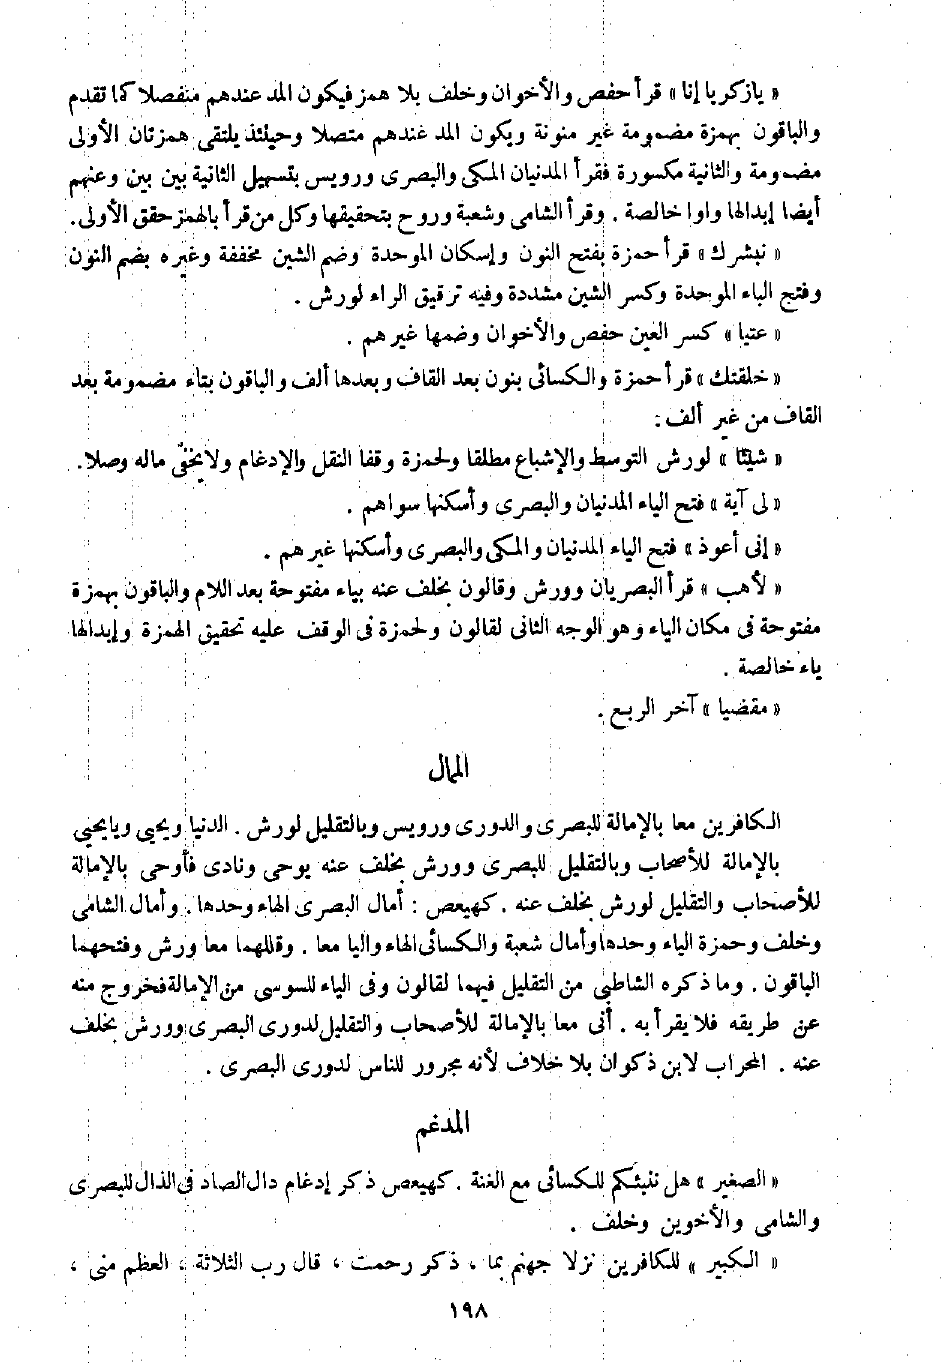 « يازكريا إنا » قرأ حفص والأخوان وخلف بلا همز فيكون المد عندهم منفصلا كما تقدم
والباقون بهمزة مضمومة غير منونة ويكون المد عندهم متصلا وحينئذ يلتقى همزتان الأولى
مضمومة والثانية مكسورة فقرأ المدنيان المكى والبصرى ورويس بتسهيل الثانية بين بين وعنهم
أيضا إبدالها واوا خالصة . وقرأ الشامى وشعبة وروح بتحقيقها وكل من قرأ بالهمز حقق الأولى.
« نبشرك » قرأ حمزة بفتح النون وإسكان الموحدة وضم الشين مخففة وغيره بضم النون
وفتح الباء الموحدة وكسر الشين مشددة وفيه ترقيق الراء لورش .
« عتيا » كسر العين حفص والأخوان وضمها غيرهم .
« خلقتك » قرأ حمزة والكسائى بنون بعد القاف وبعدها ألف والباقون بتاء مضمومة بعد
القاف من غير ألف :
« شيئا » لورش التوسط والإشباع مطلقا ولحمزة وقفا النقل والإدغام ولا يخفى ماله وصلا.
« لى آية » فتح الياء المدنيان والبصرى وأسكنها سواهم .
« إنى أعوذ » فتح الياء المدنيان والمكى والبصرى وأسكنها غيرهم .
« لأهب » قرأ البصريان وورش وقالون بخلف عنه بياء مفتوحة بعد اللام والباقون بهمزة
مفتوحة فى مكان الياء وهو الوجه الثانى لقالون ولحمزة فى الوقف عليه تحقيق الهمزة وإبدالها
ياء خالصة .
« مقضيا » آخر الربع .
الممال
الكافرين معا بالإمالة للبصرى والدورى ورويس وبالتقليل لورش . الدنيا ويحيى ويايحيى
بالإمالة للأصحاب وبالتقليل للبصرى وورش بخلف عنه يوحى ونادى فأوحى بالإمالة
للأصحاب والتقليل لورش بخلف عنه . كهيعص : أمال البصرى الهاء وحدها . وأمال الشامى
وخلف وحمزة الياء وحدها وأمال شعبة والكسائى الهاء واليا معا . وقللهما معا ورش وفتحهما
الباقون . وما ذكره الشاطبى من التقليل فيهما لقالون وفى الياء للسوسى من الإمالة فخروج منه
عن طريقه فلا يقرأ به . أنى معا بالإمالة للأصحاب والتقليل لدورى البصرى وورش بخلف
عنه . المحراب لابن ذكوان بلا خلاف لأنه مجرور للناس لدورى البصرى .
المدغم
« الصغير » هل ننبئكم للكسائى مع الغنة . كهيعص ذكر إدغام دال الصاد فى الذال للبصرى
والشامى والأخوين وخلف .
« الكبير » للكافرين نزلا جهنم بما ، ذكر رحمت ، قال رب الثلاثة ، العظم منى ،
١٩٨